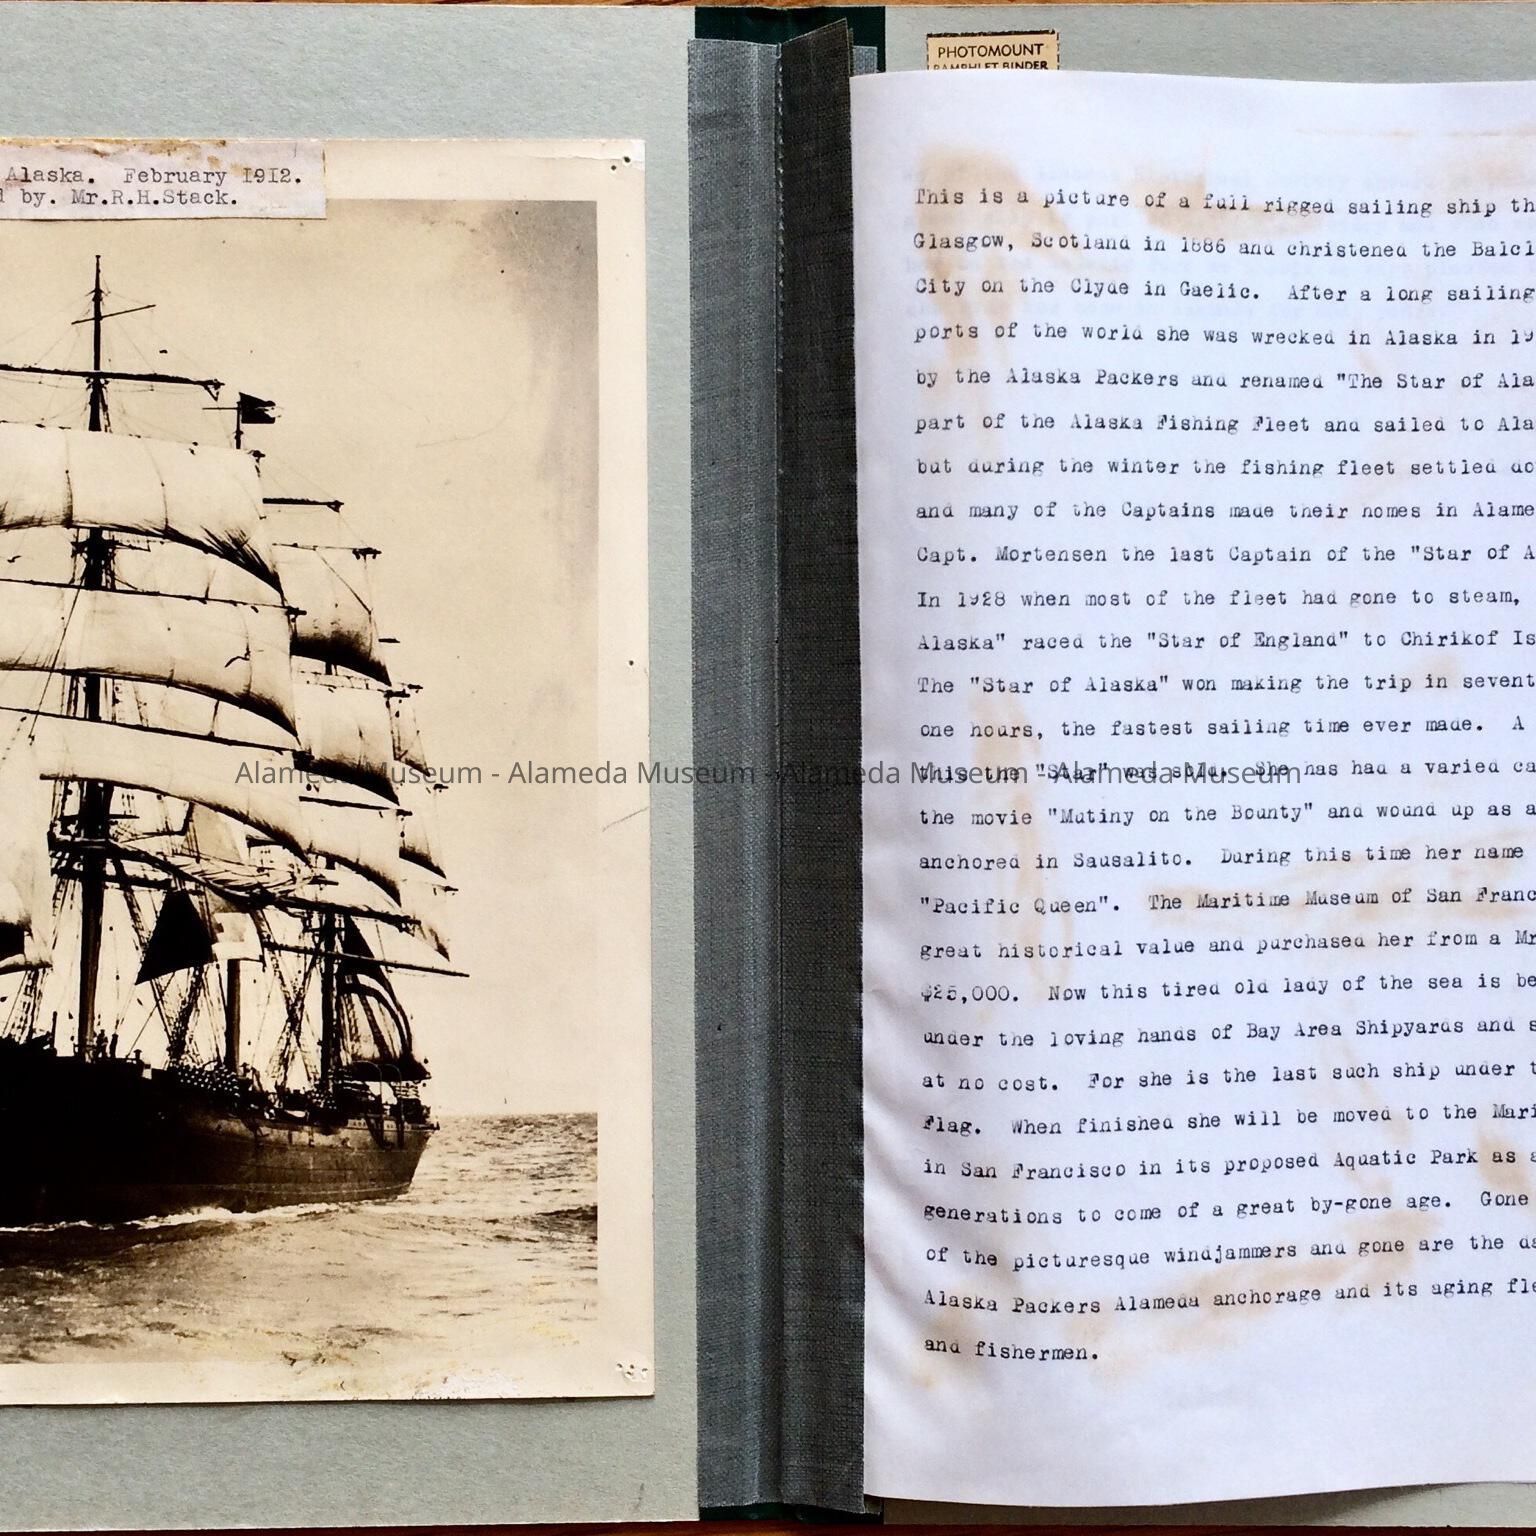 Alaska. February 1912.
d by. Mr.R.H.Stack.
PHOTOMOUNT
PAMPHLET BINDER
This is a picture of a full rigged sailing ship th
Glasgow, Scotland in 1886 and christened the Balcl
City on the Clyde in Gaelic. After a long sailing
ports of the world she was wrecked in Alaska in 19
by the Alaska Packers and renamed "The Star of Ala
part of the Alaska Fishing Fleet and sailed to Ala
but during the winter the fishing fleet settled do
and many of the Captains made their homes in Alame
Capt. Mortensen the last Captain of the "Star of A
In 1928 when most of the fleet had gone to steam,
Alaska" raced the "Star of England" to Chirikof Is
The "Star of Alaska" won making the trip in sevent
one hours, the fastest sailing time ever made. A
this the "Star" was sold. She has had a varied ca
Alameda Museum - Alameda Museum - Alameda Museum - Alameda Museum
the movie "Mutiny on the Bounty" and wound up as a
anchored in Sausalito. During this time her name
"Pacific Queen". The Maritime Museum of San Franc
great historical value and purchased her from a Mr
$25,000. Now this tired old lady of the sea is be
under the loving hands of Bay Area Shipyards and s
at no cost. For she is the last such ship under t
Flag. When finished she will be moved to the Mari
in San Francisco in its proposed Aquatic Park as a
generations to come of a great by-gone age. Gone
of the picturesque windjammers and gone are the da
Alaska Packers Alameda anchorage and its aging fle
and fishermen.